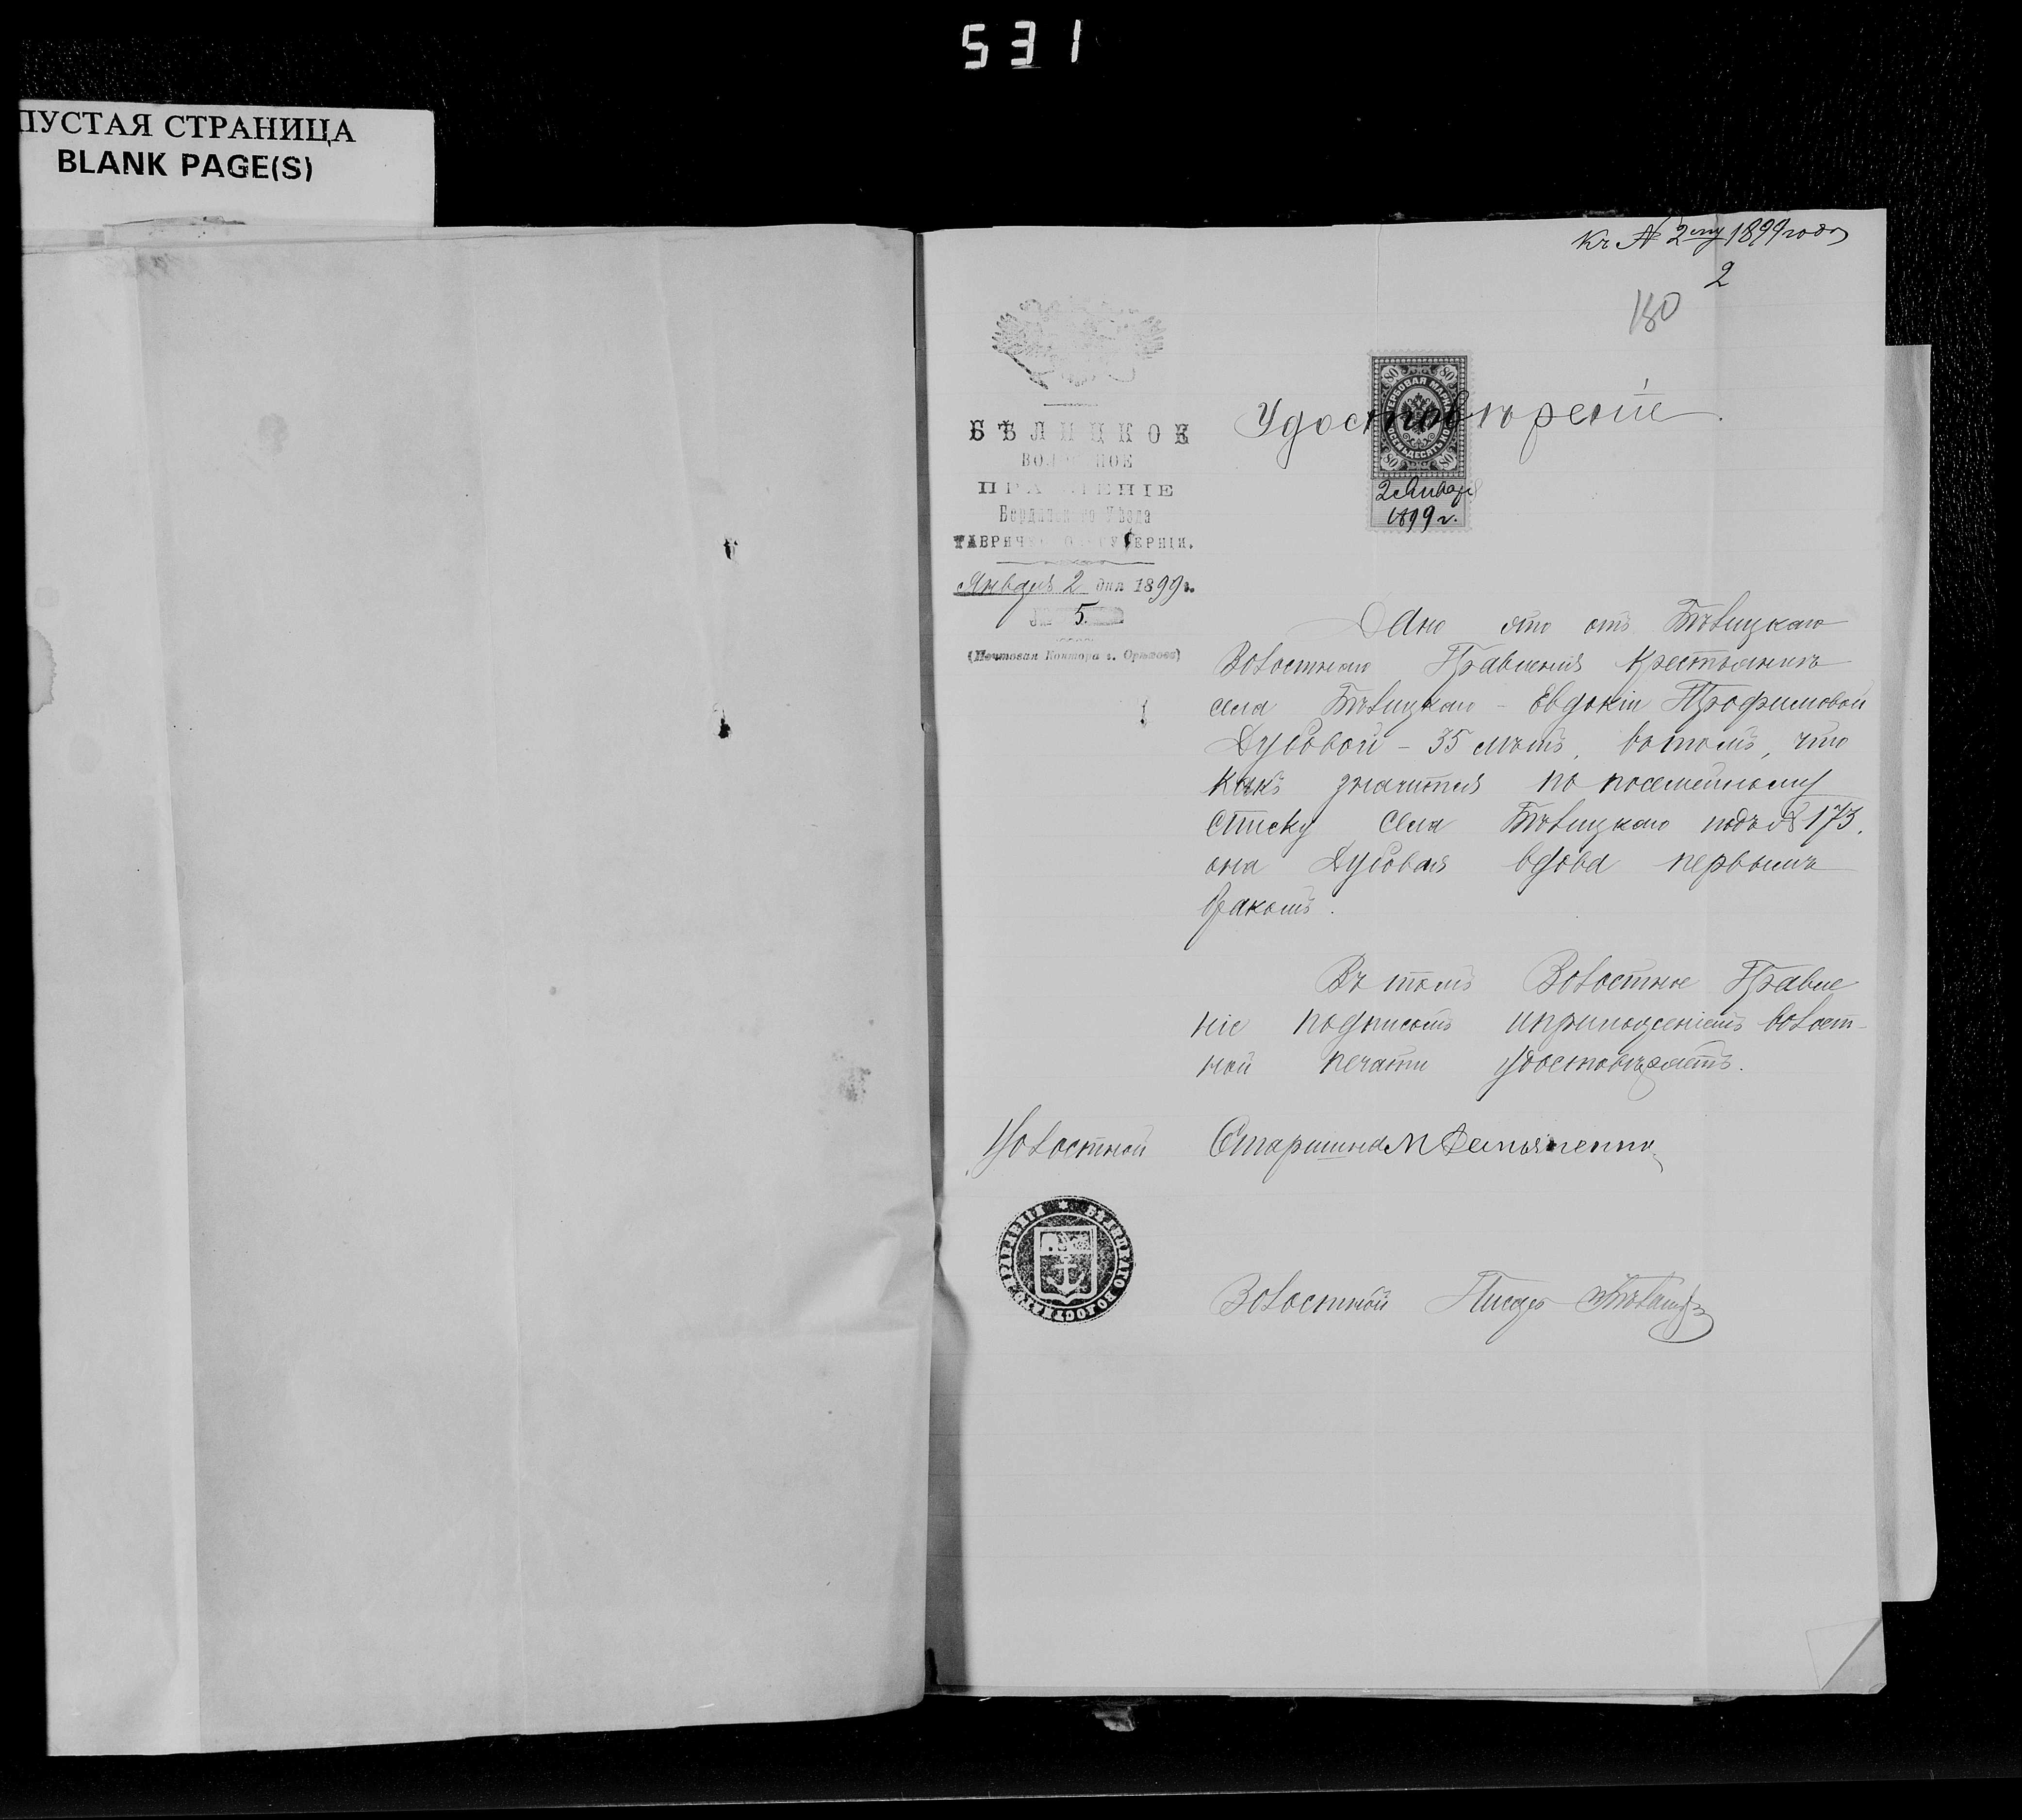 531
ПУСТАЯ СТРАНИЦА
BLANK PAGE(S)
Къ № 2му 1899 года
2
180
БѢЛИЦКОЕ
ВОЛОСТНОЕ
ПРАВЛЕНІЕ
Бердянскаго Уѣзда
ТАВРИЧЕСКОЙ ГУБЕРНІИ.
Января 2 дня 1899 г.
№ 5.
(Почтовая Контора г. Орѣховъ)
Удостовѣреніе.
80 80
ГЕРБОВАЯ МАРКА
ВОСЕМЬДЕСЯТЪ КОП
80 80
2 Января
1899 г.
Дано это отъ Бѣлицкаго
Волостнаго Правленія крестьянкѣ
села Бѣлицкаго - Евдокіи Трофимовой
Дубовой - 35 лѣтъ, въ томъ, что
какъ значится по посемейному
списку села Бѣлицкаго подъ № 173,
она Дубовая вдова первымъ
бракомъ.
Въ томъ Волостное Правле
ніе подписомъ и приложеніемъ волост-
ной печати удостовѣряетъ.
Волостной Старшина М Демьяненко
БѢЛИЦКАГО ВОЛОСТНАГО ПРАВЛЕНІЯ
Волостной Писарь